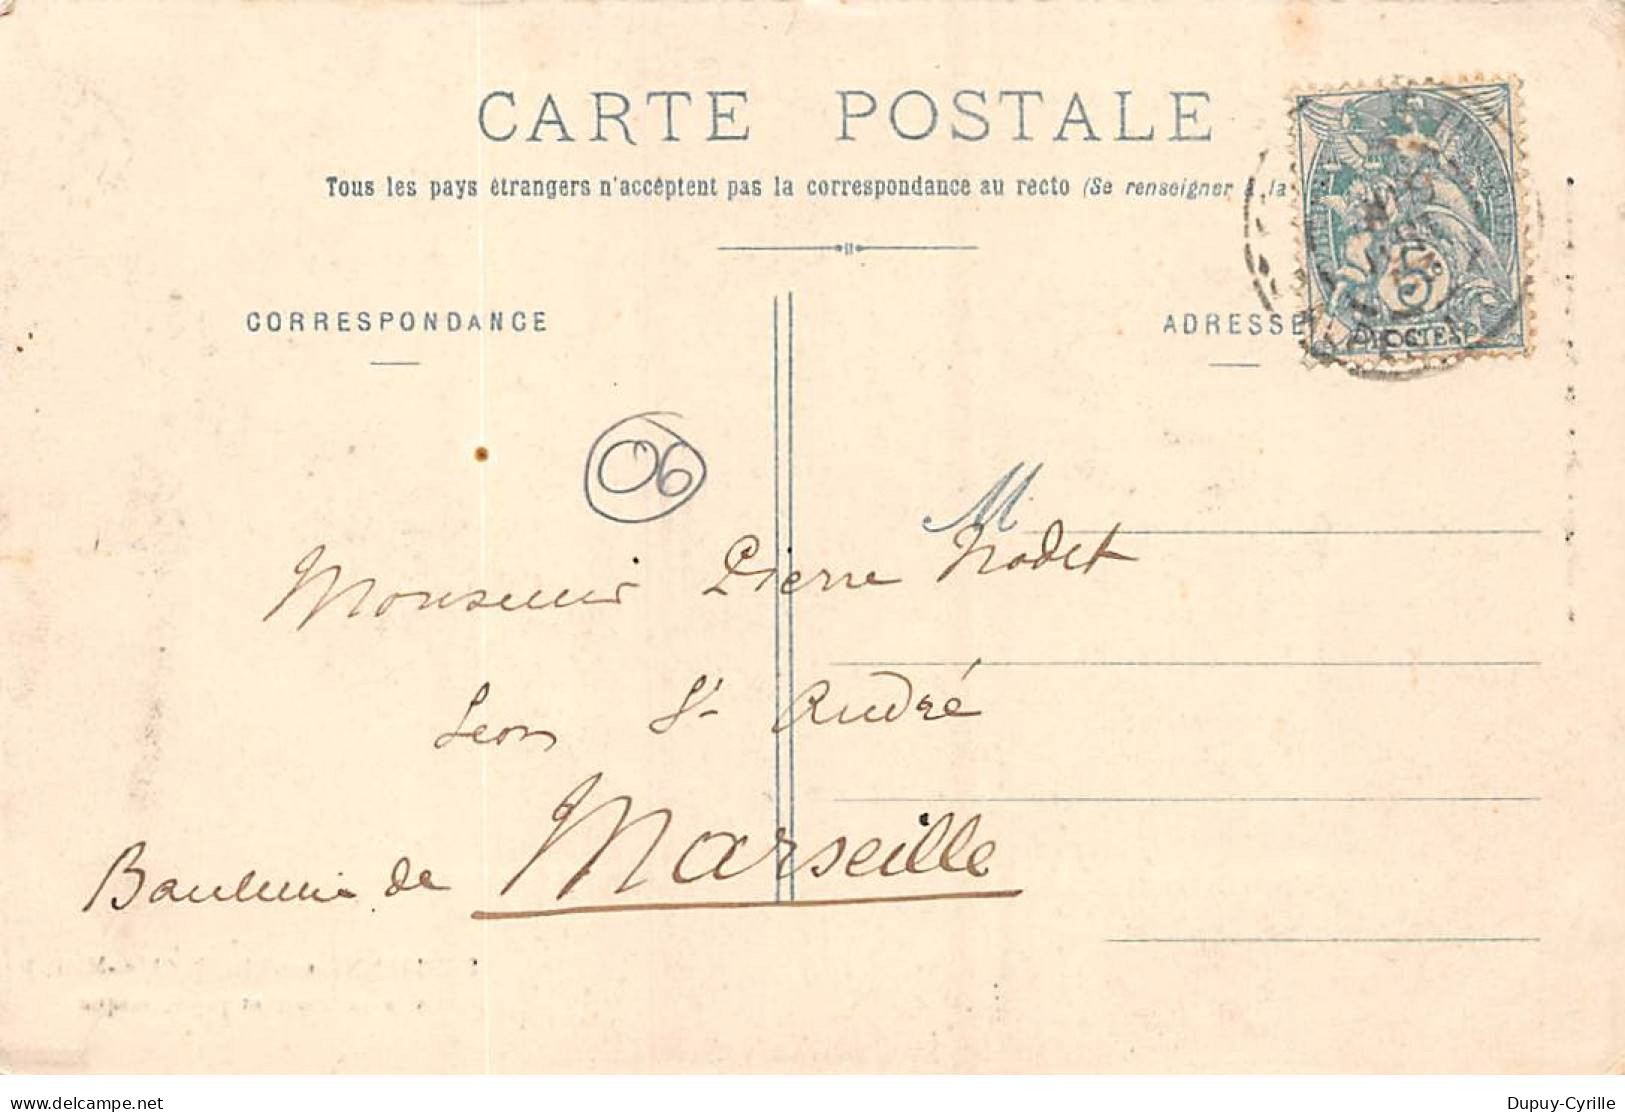 CARTE POSTALE
Tous les pays étrangers n'acceptent pas la correspondance au recto (Se renseigner à la
CORRESPONDANCE
ADRESSE
5
POSTES
06
M
Monsieur Pierre Nodet
Leon St André
Banlieue de Marseille
www.delcampe.net
Dupuy-Cyrille